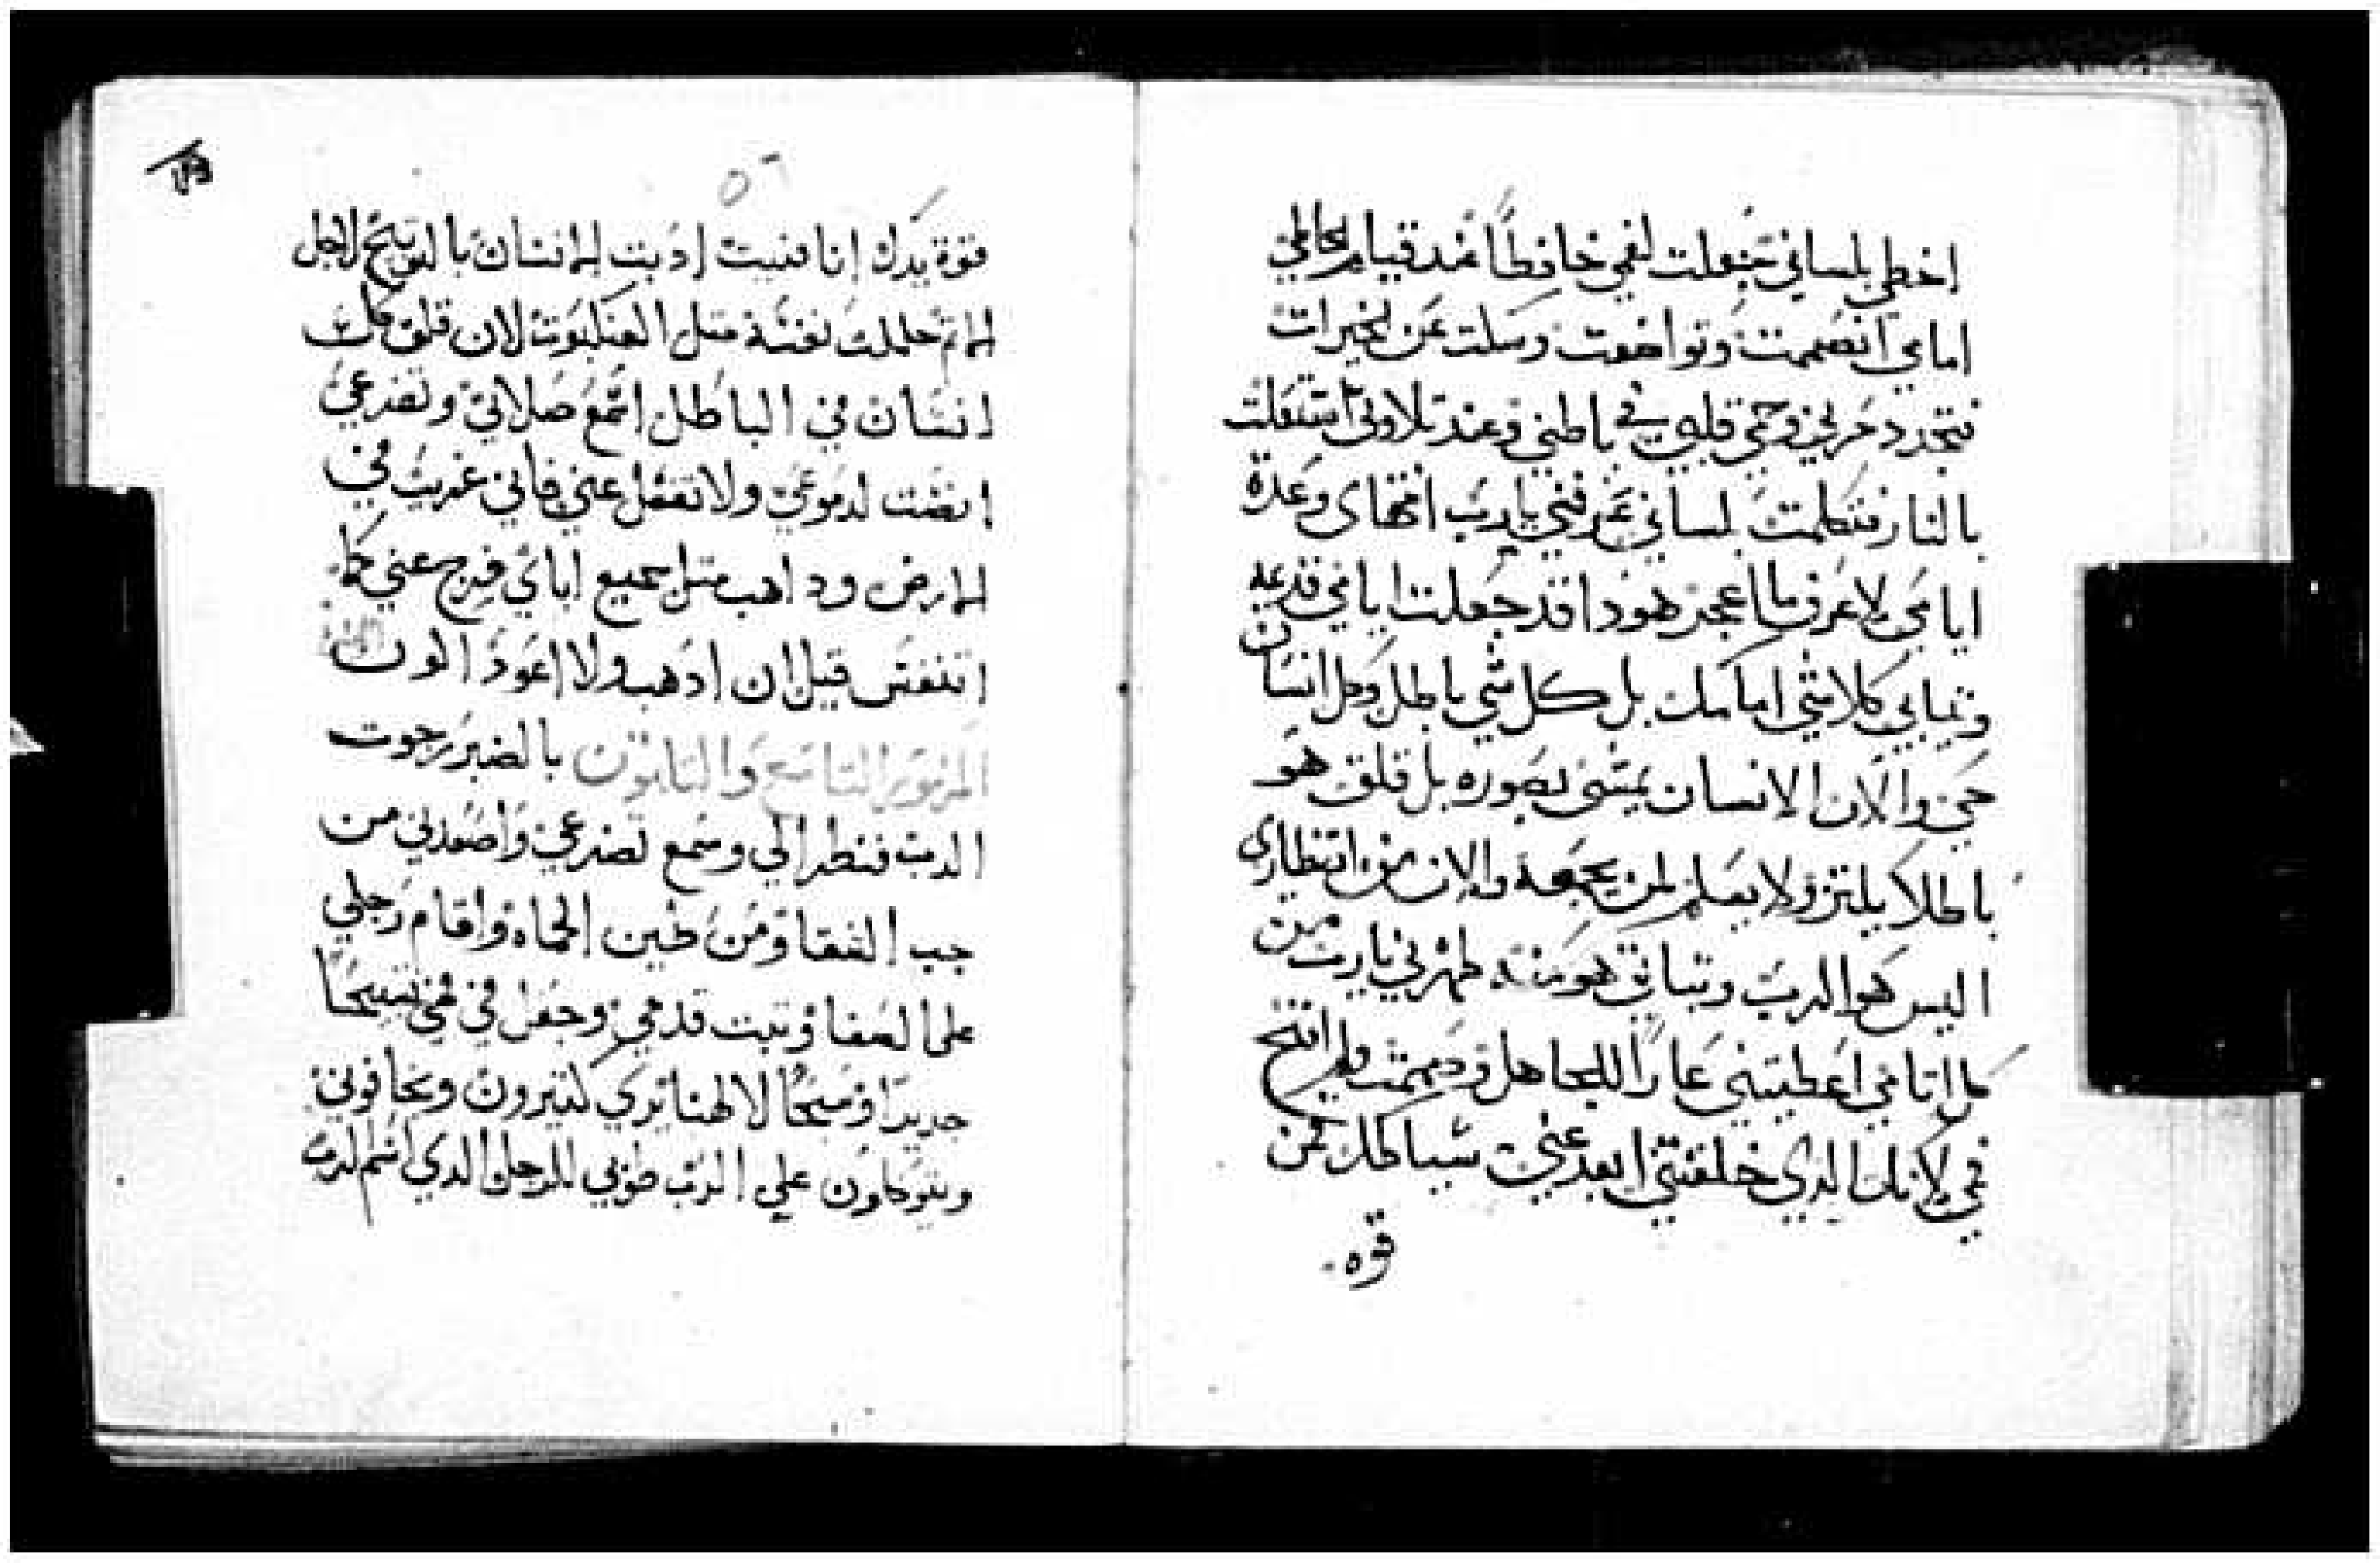 اخطي بلساني جعلت لفمي حافظاً عند قيام الخاطي
امامي انصممت وتواضعت وسكت عن الخيرات
فتجدد حزني وحمي قلبي في باطني وعند تلاوتي اشتعلت
بالنار فتكلمت بلساني عرفني يارب انتهاي وعدة
ايامي لاعرف ما اعجز هودا قد جعلت ايامي قديمه
وتباتي كلاشي امامك بل كل شي باطل وكل انسان
حي والان الانسان يمشي بصوره بل قلق هو
باطلا يكتنز ولا يعلم لمن يجمعه والان من انتظاري
اليس هو الرب وتباتي هو منه طهرني يارب من
كل اتامي اعطيتني عاراً للجاهل وصممت ولم افتح
فمي لانك الدي خلقتني ابعد عني سياطك من
قوه
قوة يدك انا فنيت ادبت الانسان بالتوبيخ لاجل
الاتم حللت نفسه متل العنكبوت لان قلق كل
انسان في الباطل اسمع صلاتي وتضرعي
انصت لدموعي ولا تغفل عني فاني غريب في
الارض وداهب متل جميع اباي فرج عني كما
اتنفس قبل ان ادهب ولا اعود اكون
المزمور التاسع والتلاتون بالصبر رجوت
الرب فنظر الي وسمع تضرعي واصعدني من
جب الشقا ومن طين الحماه واقام رجلي
على الصفا وتبت قدمي وجعل في فمي تسبيحاً
جديدا وسبحاً لالهنا يري كتيرون ويخافون
ويتوكلون علي الرب طوبي للرجل الدي اسم الرب